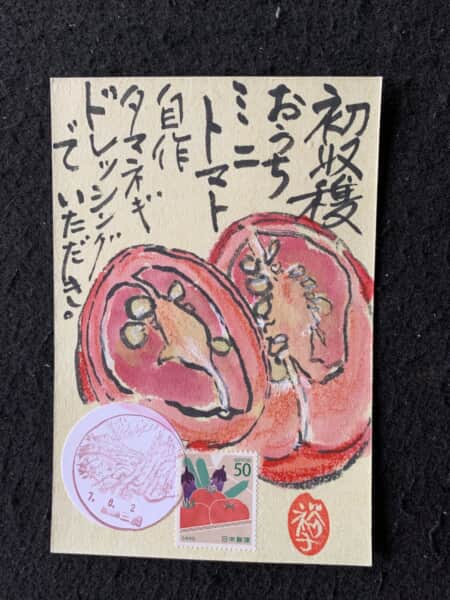 初収穫
おうち
ミニ
トマト
自作
タマネギ
ドレッシング
で いただき。
7. 8. 2
NIPPON
50
日本郵便